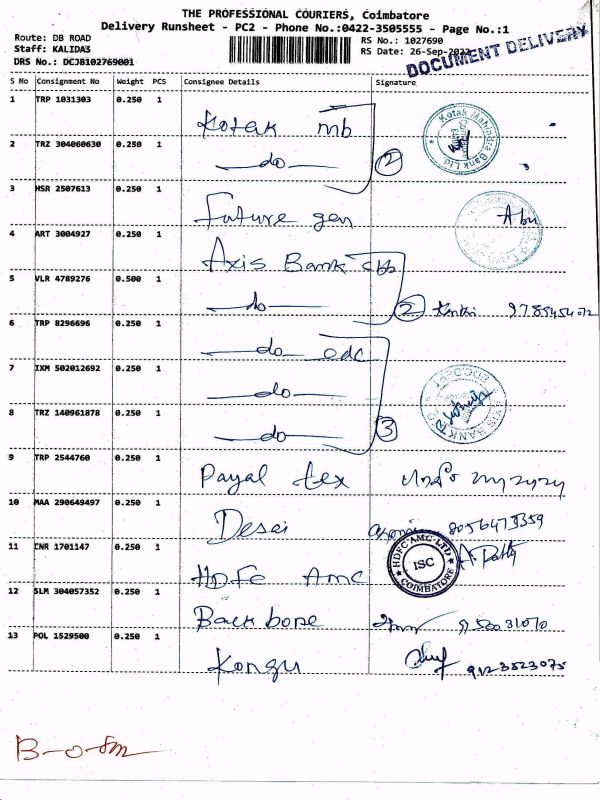 THE PROFESSIONAL COURIERS, Coimbatore
Delivery Runsheet - PC2 - Phone No.:0422-3505555 - Page No.:1
Route: DB ROAD
Staff: KALIDAS
DRS No.: DCJB102769001
RS No.: 1027690
RS Date: 26-Sep-2022
DOCUMENT DELIVERY
S No Consignment No Weight PCS Consignee Details Signature
1 TRP 1031303 0.250 1 Kotak mb
2 TRZ 304060630 0.250 1 do 2
Kotak Mahindra Bank Ltd.
3 HSR 2507613 0.250 1 Future gen
4 ART 3004927 0.250 1 Axis Bank cbb
5 VLR 4789276 0.500 1 do 2
6 TRP 8296696 0.250 1 do edc
7 IXM 502012692 0.250 1 do
8 TRZ 140961878 0.250 1 do 3
9 TRP 2544760 0.250 1 Payal tex
10 MAA 290649497 0.250 1 Desai 8056473359
11 CNR 1701147 0.250 1 HDFC AMC
HDFC AMC LTD
ISC
COIMBATORE
12 SLM 304057352 0.250 1 Back bone
13 POL 1529500 0.250 1 Kongu 9123523075